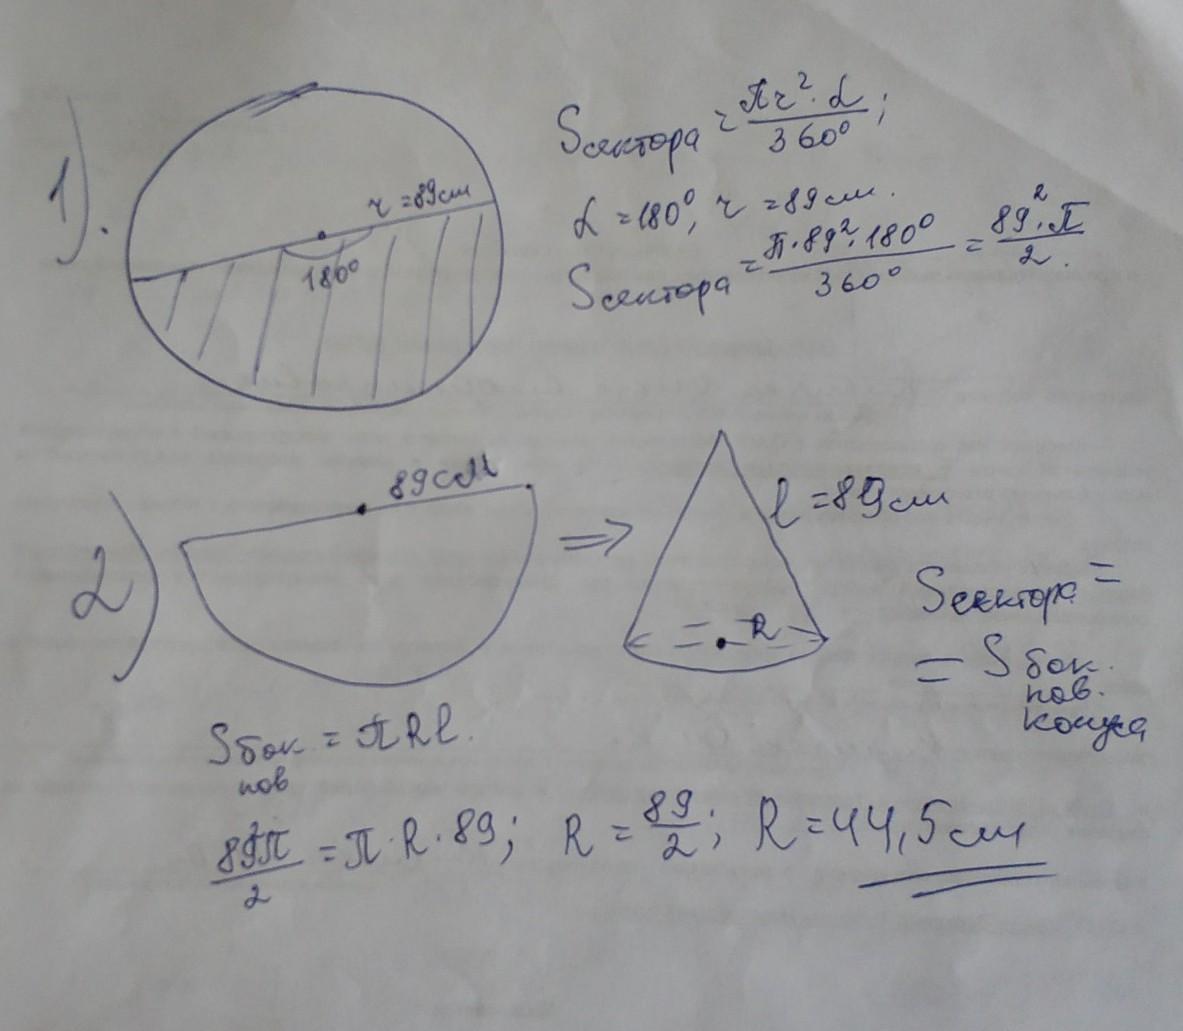 1).
r = 89см
180°
Sсектора = πr²·α / 360° ;
α = 180°, r = 89см.
Sсектора = π·89²·180° / 360° = 89²·π / 2.
2)
89см
⇒
l = 89см
R
Sсектора =
= S бок.
пов.
конуса
Sбок = πRl.
пов
89²π / 2 = π·R·89; R = 89 / 2; R = 44,5см